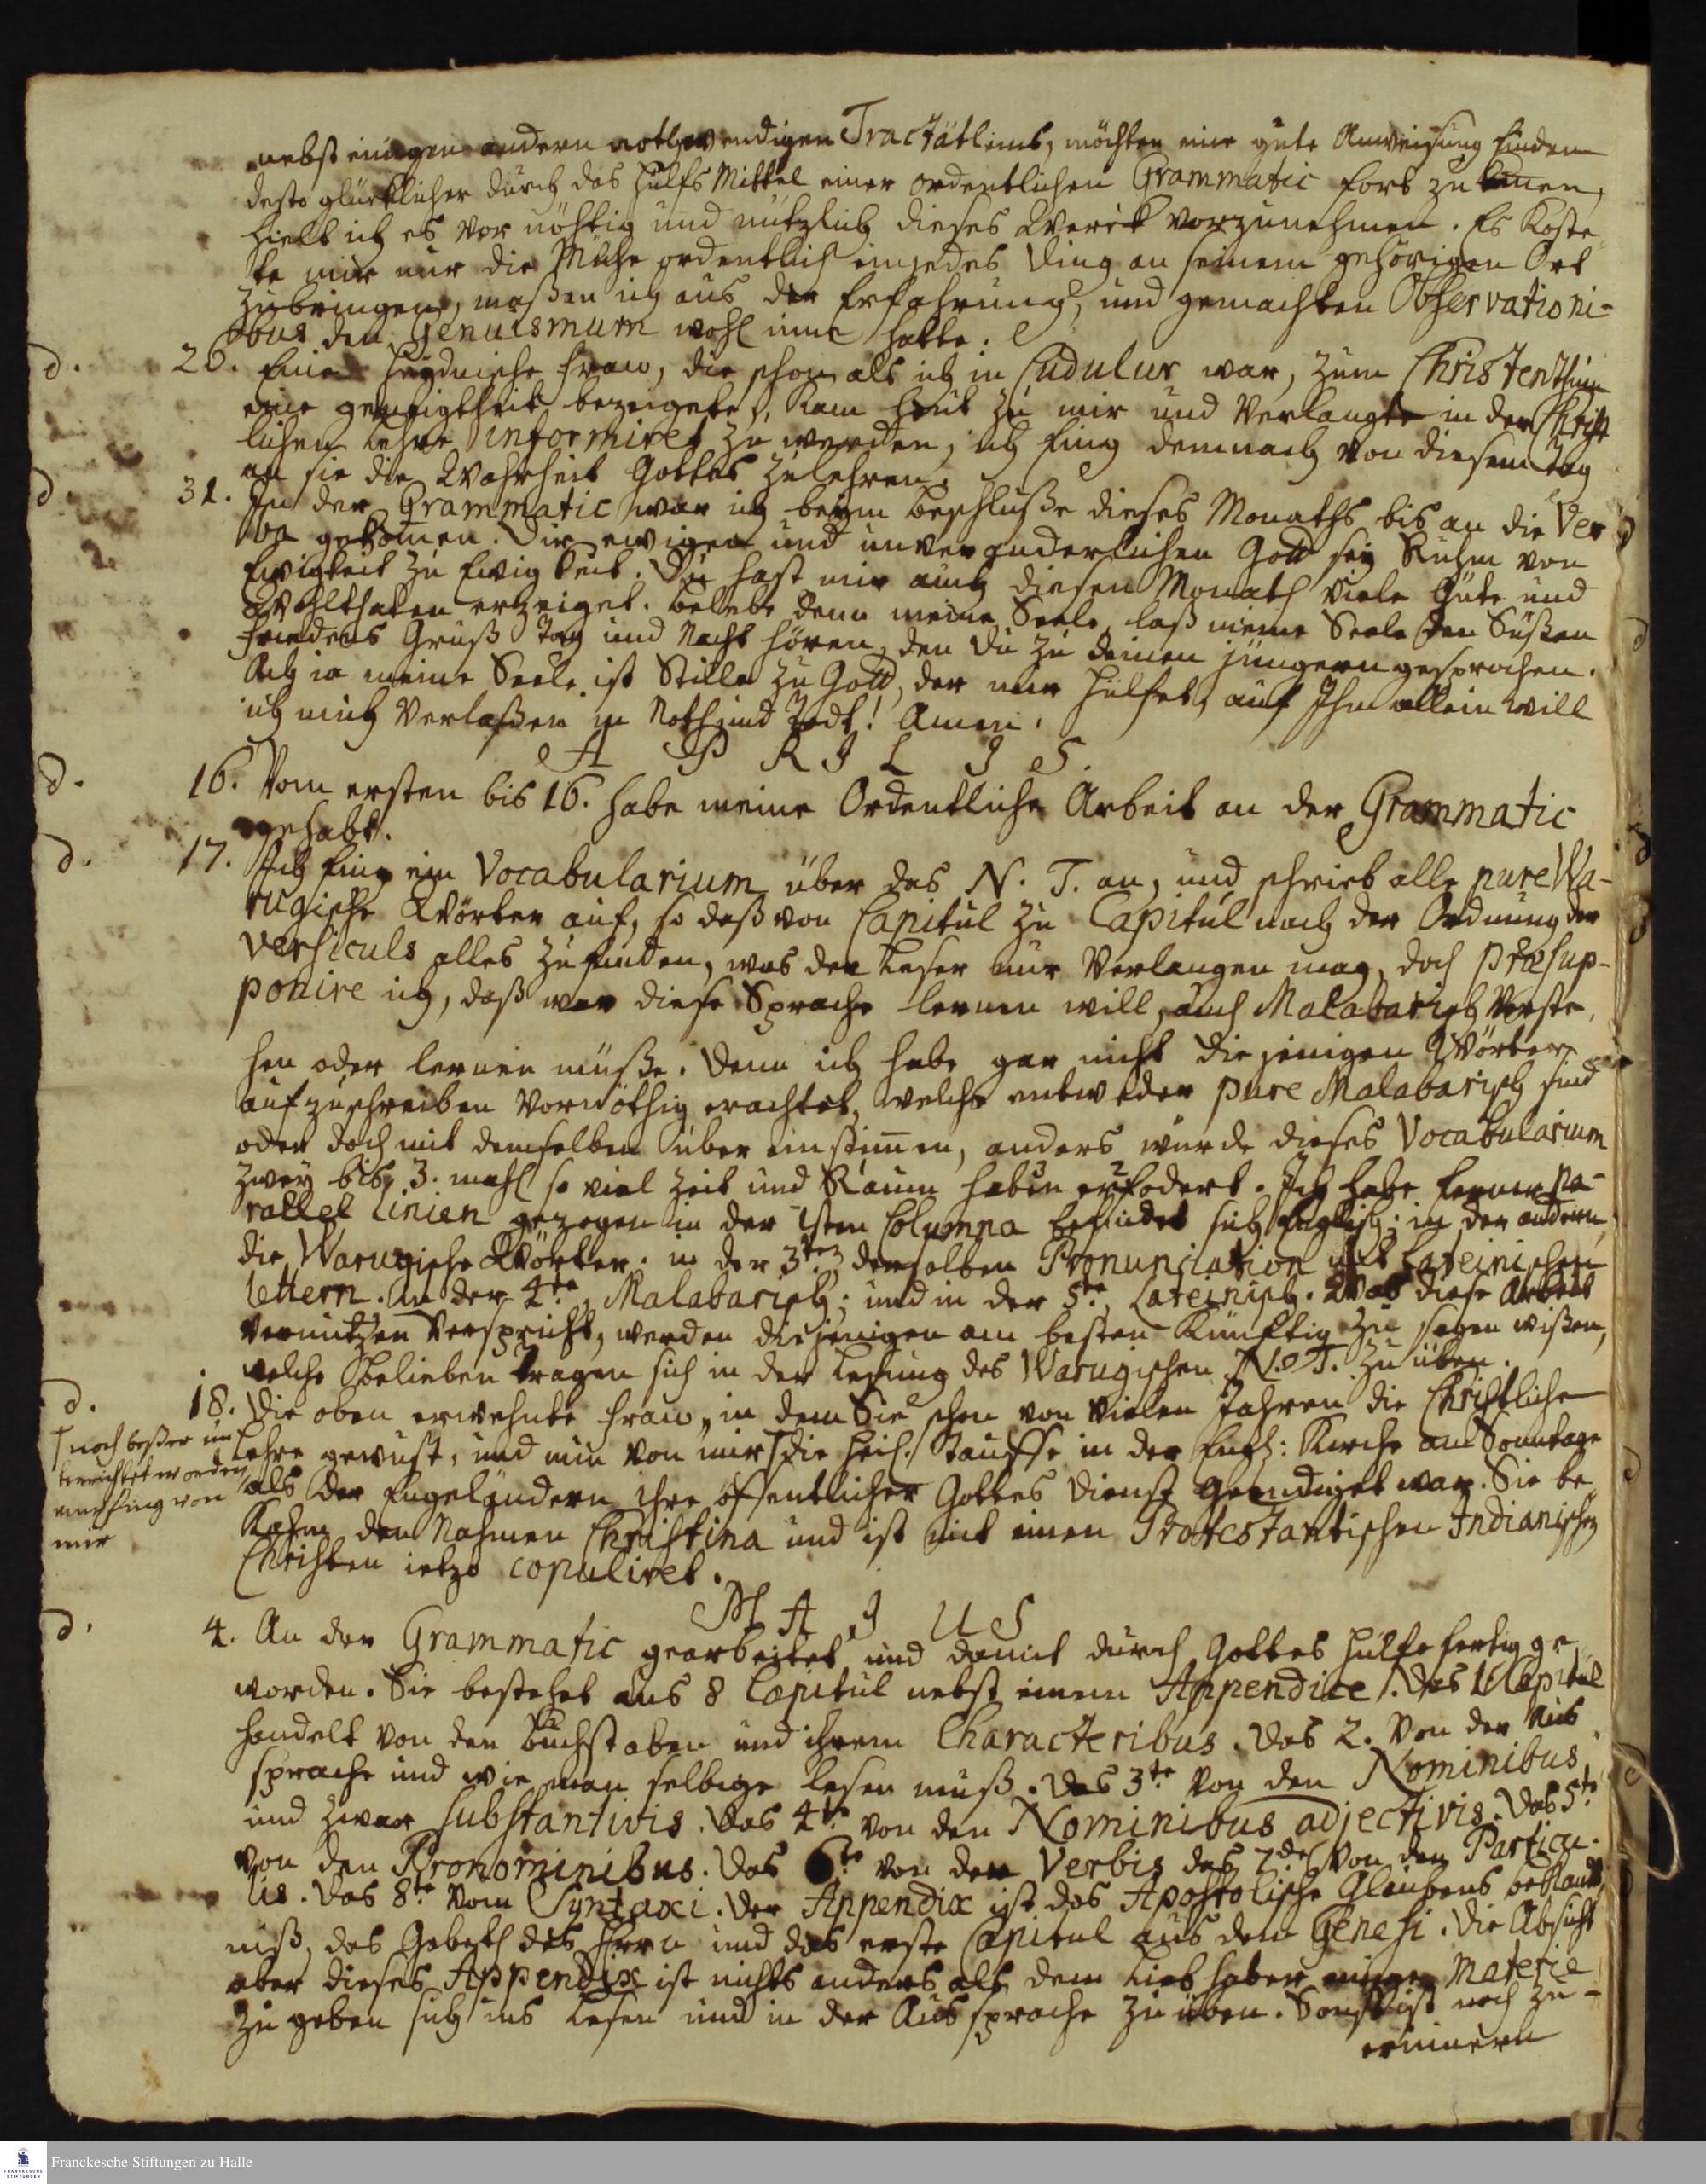 nebst einigen andern nothwendigen Tractätleins, möchten eine gute Anweisung finden
desto glücklicher durch das Hülfs Mittel einer ordentlichen Grammatic fort zu kommen,
Hielt ich es vor nöthig und nützlich dieses Werck vorzunehmen. Es koste
te mir nur die Mühe ordentlich ein jedes Ding an seinem gehörigen Ort
zubringen, maßen ich aus der Erfahrung, und gemachten Observationi-
bus den Genuismum wohl inne hatte.
d. 26. Eine Heydnische Frau, die schon als ich in Cudulur war, zum Christenthum
eine geneigtheit bezeigete, kam heut zu mir und Verlangte in der Christ
lichen Lehre informiret zu werden, ich fing demnach von diesem Tag
an sie die Wahrheit Gottes zu lehren.
d. 31. In der Grammatic war ich beym beschluße dieses Monaths bis an die Ver
ba gekommen. Dir ewigen und unveränderlichen Gott sey Ruhm von
Ewigkeit zu Ewigkeit. Du hast mir auch diesen Monath viele Güte und
Wohlthaten erzeiget. Belebe denn meine Seele, laß meine Seele den Süßen
Friedens Gruß Tag und Nacht hören, den du zu deinen jüngern gesprochen.
Ach ja meine Seele ist Stille zu Gott, der mir hülfet, auf Ihn allein will
ich mich Verlaßen in Noth und Todt! Amen.
A P R I L I S.
d. 16. Vom ersten bis 16. habe meine Ordentliche Arbeit an der Grammatic
gehabt.
d. 17. Ich fing ein Vocabularium über das N. T. an, und schrieb alle pure Wa-
rugische Wörter auf, so daß von Capitul zu Capitul nach der Ordnung der
Versiculs alles zu finden, was der Leser nur Verlangen mag, doch præsup-
ponire ich, daß wer diese Sprache lernen will, auch Malabarisch Verste
hen oder lernen müße. Denn ich habe gar nicht die jenigen Wörter
aufzuschreiben vor nöthig erachtet, welche entweder pure Malabarisch sind
oder doch mit demselben über einstimmen, anders würde dieses Vocabularium
zwey bis 3. mahl so viel Zeit und Raum haben erfodert. Ich habe ferner pa-
rallel Linien gezogen in der 1sten Columna befindet sich Englisch; in der andern
die Warugische Wörter. in der 3ten derselben Pronunciation mit Lateinischen
lettern. In der 4te, Malabarisch; und in der 5te, Lateinisch. Was diese Arbeit
vor nutzen Verspricht, werden diejenigen am besten künftig zu sagen wißen,
welche belieben tragen sich in der Lesung des Warugischen N. T. zu üben.
d. 18. Die oben erwehnte Frau, in dem Sie schon von vielen Jahren die Christliche
Lehre gewust, und nun von mir die heil. Tauffe in der Engl: Kirche am Sonntage
noch beßer un
terrichtet worden
empfing von
mir
als der Engeländern ihre öffentlicher Gottes Dienst geendiget war. Sie be
kahm den Nahmen Christina und ist mit einen Protestantischen Indianischen
Christen ietzo copuliret.
M A J U S
d. 4. An der Grammatic gearbeitet und damit durch Gottes Hülfe fertig ge
worden. Sie bestehet aus 8 Capitul nebst einem Appendice. Das 1 Capitul
handelt von den Buchstaben und ihrem Characteribus. Das 2. Von der Aus
sprache und wie man selbige lesen muß. Das 3te von den Nominibus
und zwar substantivis. Das 4te von den Nominibus adjectivis. Das 5te
von den Pronominibus. Das 6te von den Verbis das 7de von den Particu-
lis. Das 8te vom Syntaxi. Der Appendix ist das Apostolische Glaubens bekänt
niß, das Gebeth des Herrn und das erste Capitul aus dem Genesi. Die Absicht
aber dieses Appendix ist nichts anders als dem Liebhaber einige Materie
zu geben sich ins Lesen und in der Aussprache zu üben. Sonst ist noch zu-
erinnern
Franckesche Stiftungen zu Halle